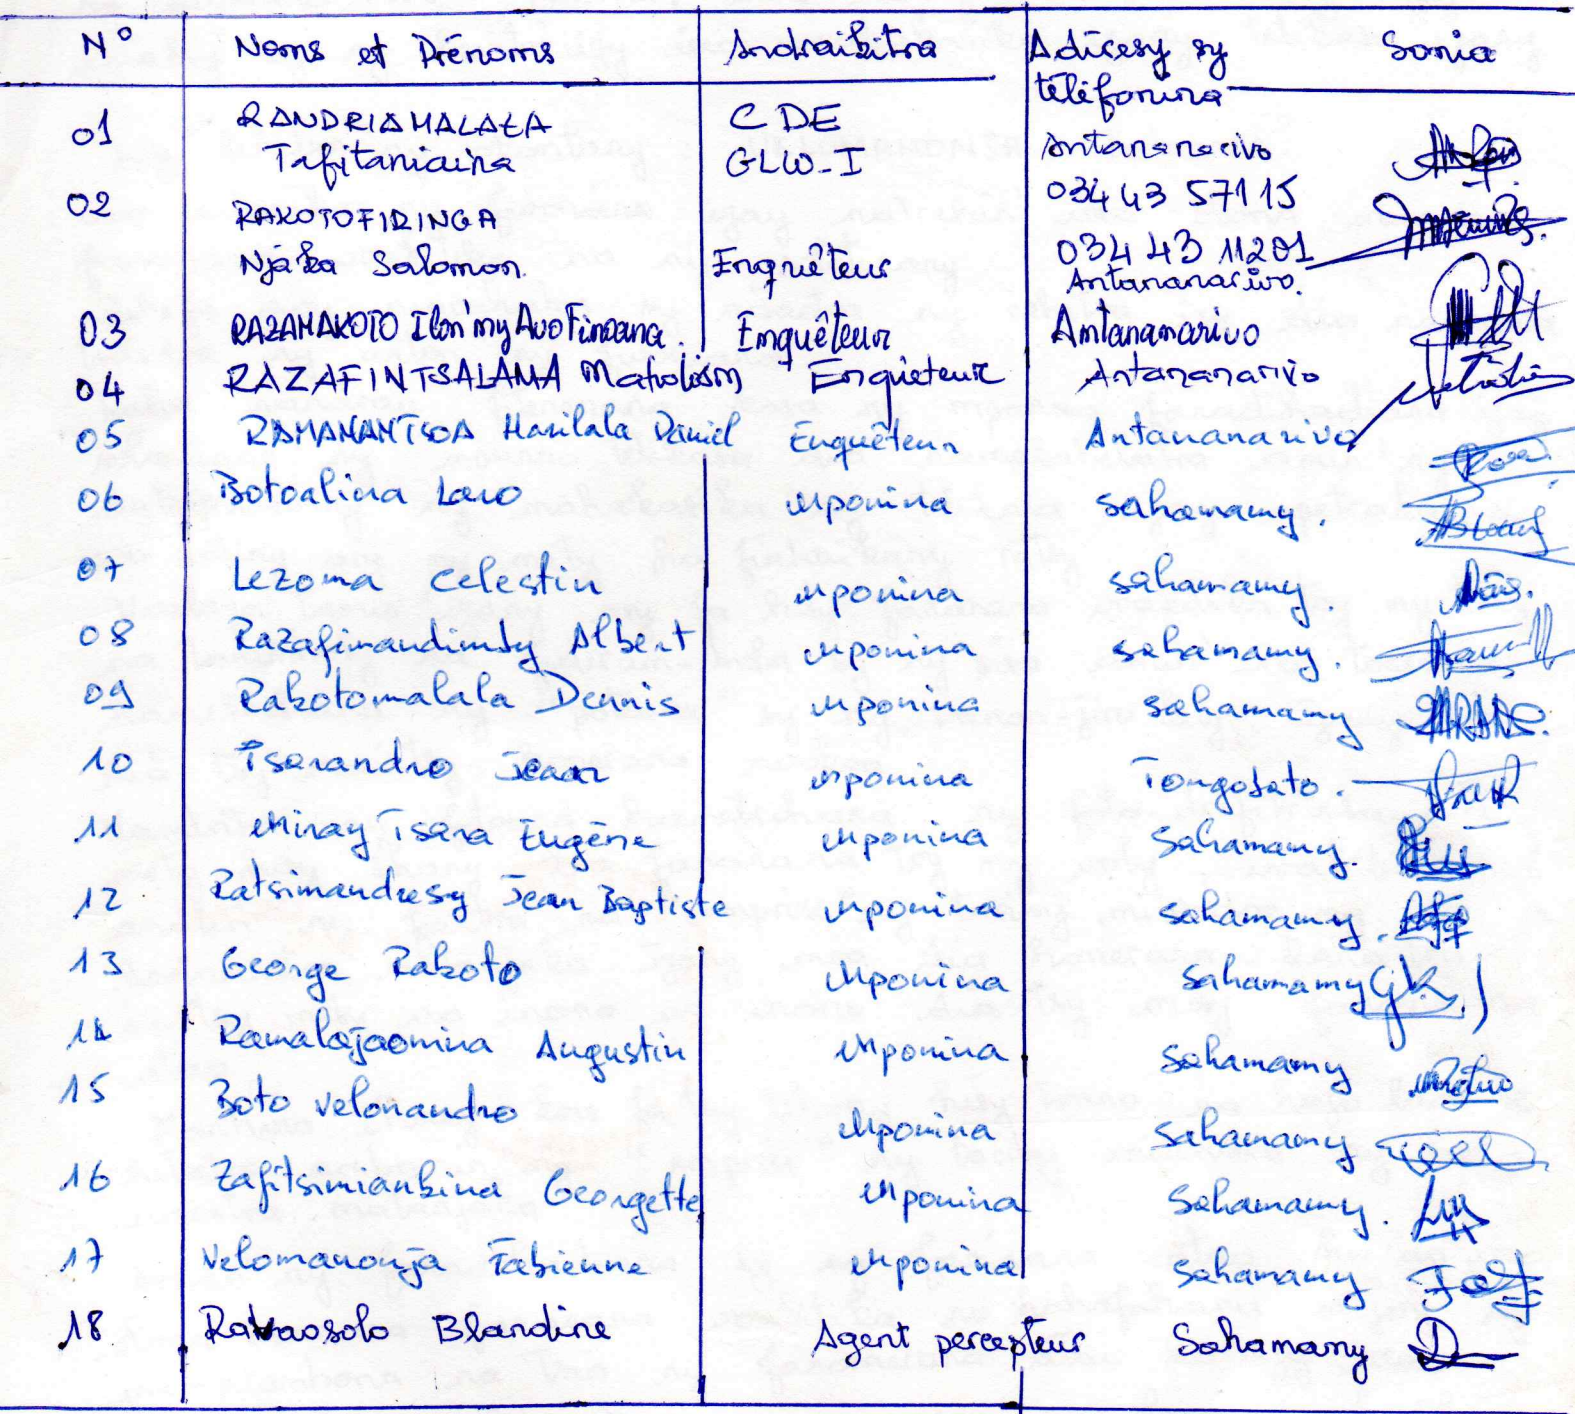 N° Noms et Prénoms Andraikitra Adiresy sy Sonia
téléfonina
01 RANDRIAMALALA CDE Antananarivo
Tafitaniaina GLW-I 034 43 571 15
02 RAKOTOFIRINGA
Njáka Salomon. Enquêteur 034 43 11201
Antananarivo.
03 RAZAMAKOTO Ilon'my Avo Finoana. Enquêteur Antananarivo
04 RAZAFINTSALAMA Enquieteur Antananarivo
05 RAMANANTSOA Harilala Daniel Enquêteur Antananarivo
06 Botoalina Laro Mponina Sahamamy.
07 Lezoma Celestin Mponina Sahamamy.
08 Razafimandimby Albert Mponina Sahamamy.
09 Rakotomalala Dennis Mponina Sahamamy
10 Tsarandro Jean Mponina Tongobato.
11 Miray Tsara Eugène Mponina Sahamamy.
12 Ratsimandresy Jean Baptiste Mponina Sahamamy.
13 George Rakoto Mponina Sahamamy
14 Ramalajaonina Augustin Mponina Sahamamy
15 Boto Velonandro Mponina Sahamamy
16 Zafitsimiankina Georgette Mponina Sahamamy.
17 Velomanonja Fabienne Mponina Sahamamy
18 Ravaosolo Blandine Agent percepteur Sahamamy